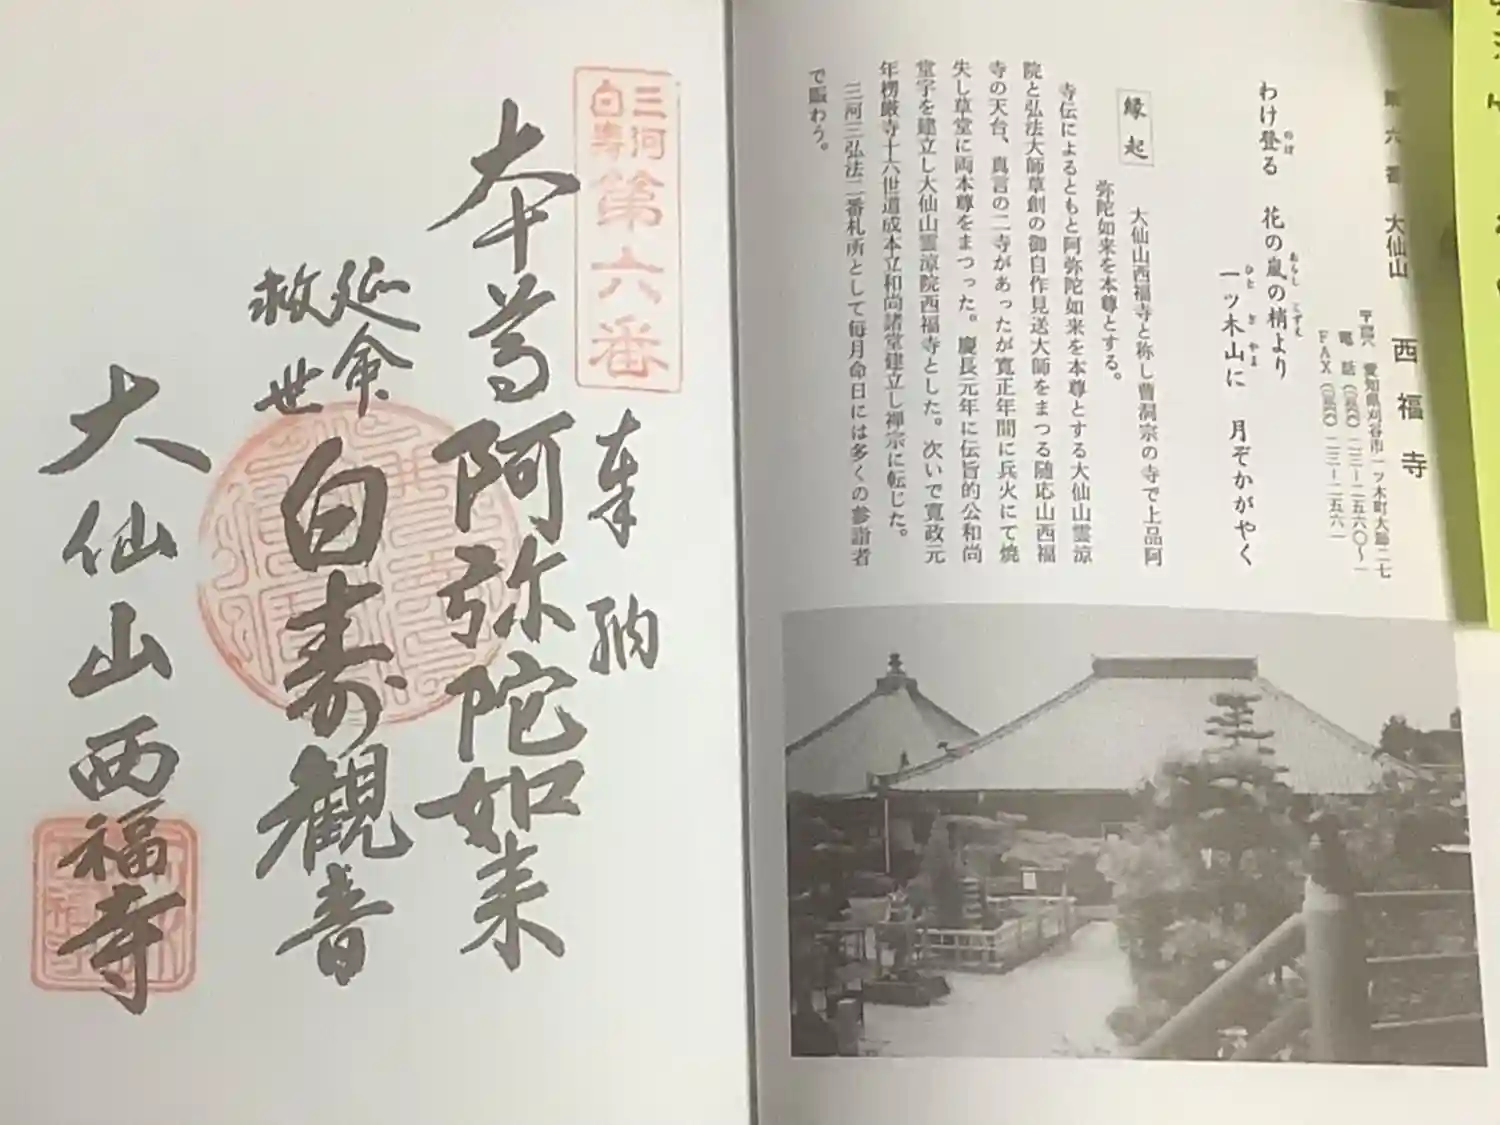 第六番 大仙山 西福寺
愛知県刈谷市一ッ木町大師二七
電話(〇五六六)二三-二五六〇~一
FAX(〇五六六)二三-二五六一
わけ登る 花の嵐の梢より
のぼ
あらし
こずえ
一ッ木山に 月ぞかがやく
ひと
ぎ
やま
縁起
大仙山西福寺と称し曹洞宗の寺で上品阿
弥陀如来を本尊とする。
寺伝によるともと阿弥陀如来を本尊とする大仙山霊涼
院と弘法大師草創の御自作見送大師をまつる随応山西福
寺の天台、真言の二寺があったが寛正年間に兵火にて焼
失し草堂に両本尊をまつった。慶長元年に伝旨的公和尚
堂宇を建立し大仙山霊涼院西福寺とした。次いで寛政元
年楞厳寺十六世道成本立和尚諸堂建立し禅宗に転じた。
三河三弘法二番札所として毎月命日には多くの参詣者
で賑わう。
三河
白寿
第六番
奉納
本尊阿弥陀如来
延命
救世
白寿観音
大仙山西福寺